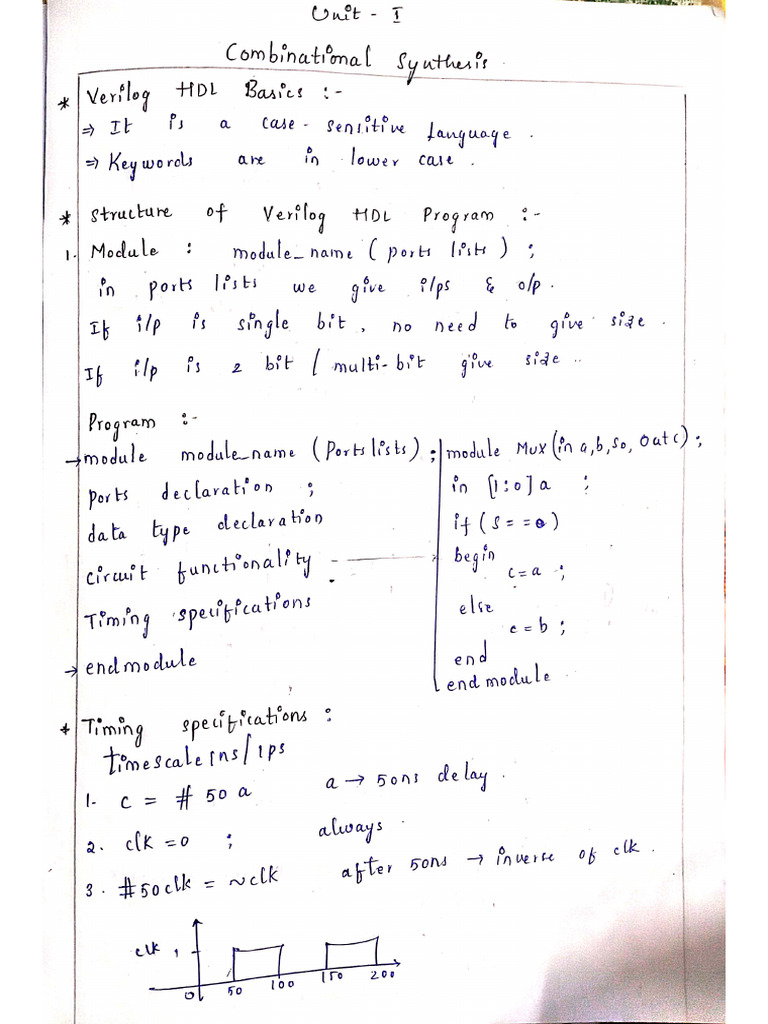 Unit - I
Combinational Synthesis.
* Verilog HDL Basics :-
⇒ It is a case-sensitive language.
⇒ Keywords are in lower case.
* Structure of Verilog HDL Program :-
1. Module : module_name (ports lists) ;
in ports lists we give i/ps & o/p.
If i/p is single bit, no need to give size.
If i/p is 2 bit / multi-bit give size ..
Program :-
→ module module_name (Ports lists) ;
ports declaration ;
data type declaration
circuit functionality -
Timing specifications
→ endmodule
module Mux (in a, b, so, out c) ;
in [1:0] a ;
if (s == 0)
begin
c = a ;
else
c = b ;
end
end module
* Timing specifications :
timescale 1ns/1ps
1. c = # 50 a a → 50ns delay.
2. clk = 0 ; always.
3. #50 clk = ~clk after 50ns → inverse of clk.
clk 1
0 50 100 150 200